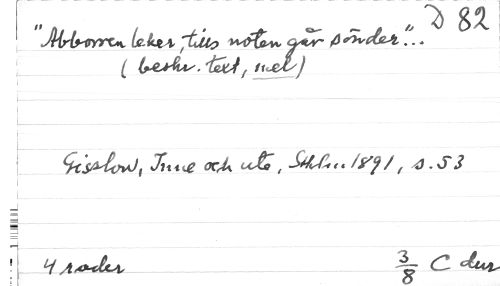 D 82
"Abborren leker, tills noten går sönder"...
(beskr. text, mel)
Gisslow, Inne och ute, Sthlm 1891, s. 53
4 rader
3/8 C dur